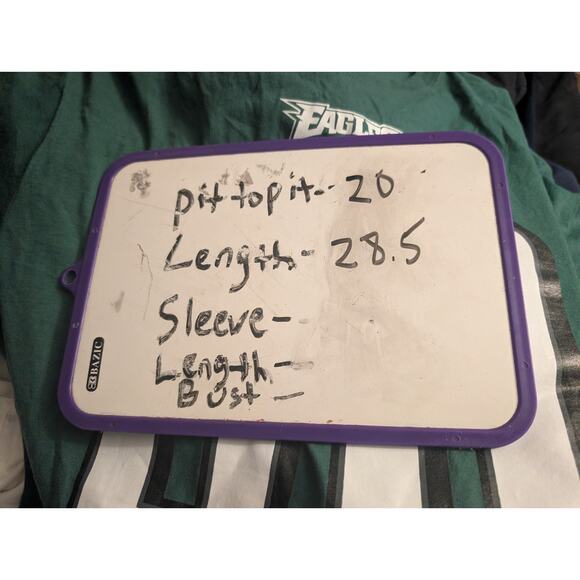 EAGLES
pit to pit-- 20
Length- 28.5
Sleeve-
Length-
Bust-
BAZIC